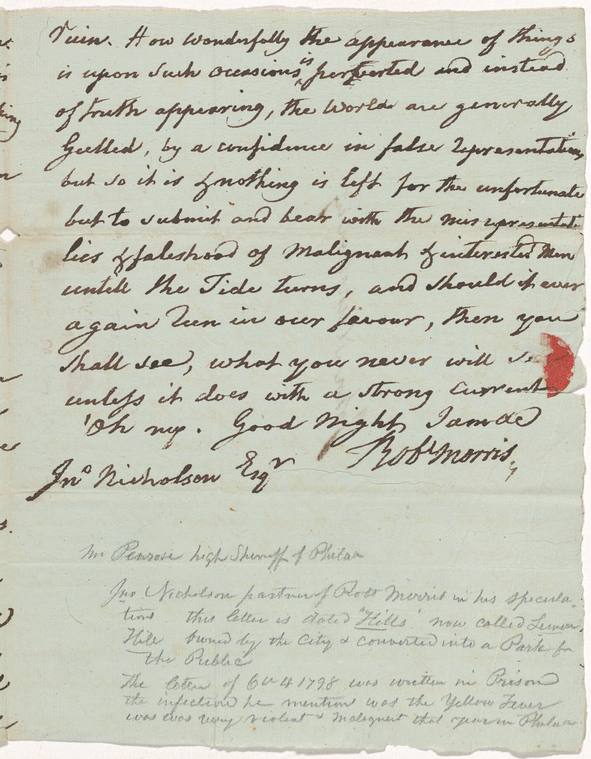 ruin. How wonderfully the appearance of things
is upon such occasions is perverted and instead
of truth appearing, the World are generally
Gulled, by a confidence in false representations
but so it is & nothing is left for the unfortunate
but to submit and bear with the misrepresentat.
lies & falsehood of Malignant & interested Men
untill the Tide turns, and should it ever
again run in our favour, then you
shall see, what you never will se
unless it does with a strong current
Oh my. Good Night I am &c
Robt Morris,
Jno Nicholson Esqr
Mr Penrose high Sheriff of Philaa
Jno Nicholson partner of Robt Morris in his specula-
tions this letter is dated "Hills" now called Lemon
Hill owned by the City & converted into a Park for
the Public
The letter of 6th 4 1798 was written in Prison
the infection he mention was the Yellow Fever
was was very violent & malignent that year in Philaa